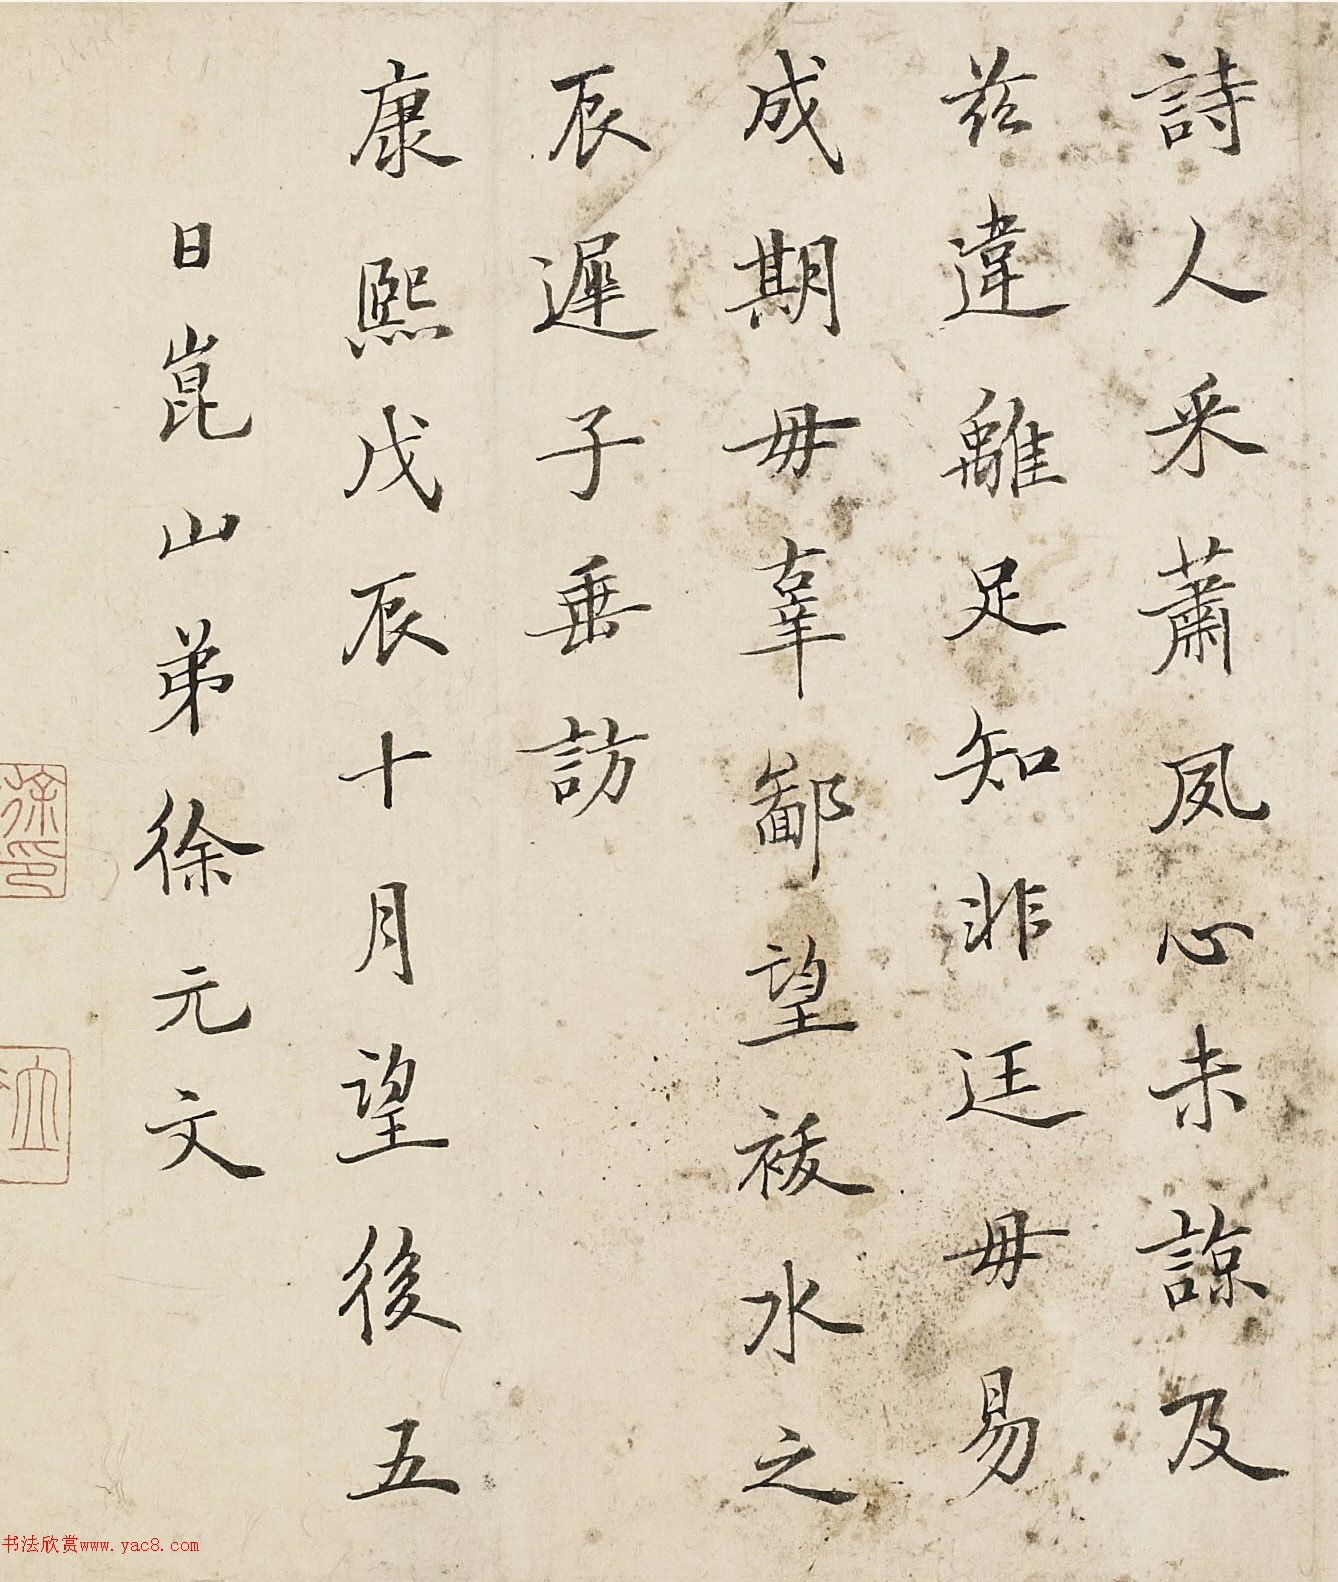 詩人采蕭夙心未諒及
茲違離足知非迋毋易
成期毋辜鄙望祓水之
辰遲子垂訪
康熙戊辰十月望後五
日崑山弟徐元文
书法欣赏www.yac8.com